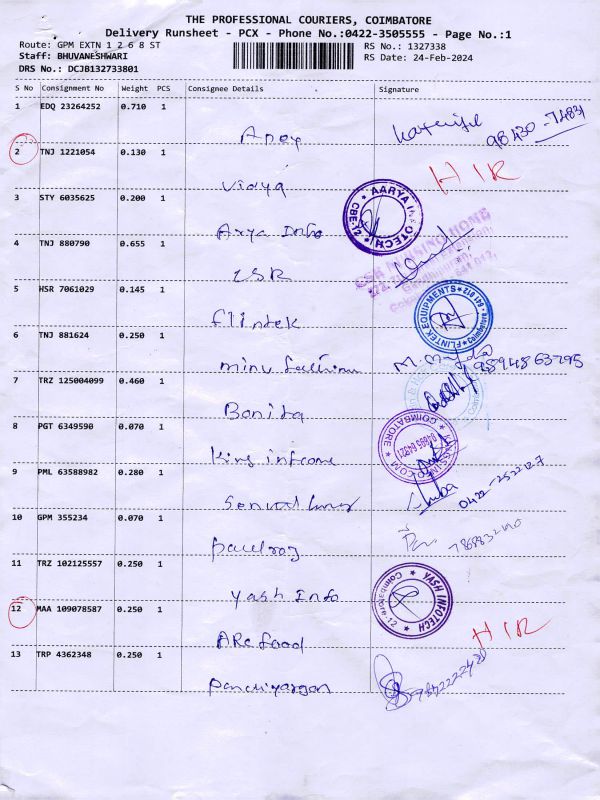 THE PROFESSIONAL COURIERS, COIMBATORE
Delivery Runsheet - PCX - Phone No.:0422-3505555 - Page No.:1
Route: GPM EXTN 1 2 6 8 ST
RS No.: 1327338
Staff: BHUVANESHWARI
RS Date: 24-Feb-2024
DRS No.: DCJB132733801
S No Consignment No Weight PCS Consignee Details Signature
1 EDQ 23264252 0.710 1
98430-74831
2 TNJ 1221054 0.130 1
Vidya HIR
3 STY 6035625 0.200 1
Arya Info AARYA INFOTECH CBE-12
4 TNJ 880790 0.655 1
LSR
5 HSR 7061029 0.145 1
flintek FLINTEK EQUIPMENTS Coimbatore 641 012
6 TNJ 881624 0.250 1
minu
7 TRZ 125004099 0.460 1
Bonita
8 PGT 6349590 0.070 1
King COIMBATORE
9 PML 63588982 0.280 1
0422-2522127
10 GPM 355234 0.070 1
paulraj
11 TRZ 102125557 0.250 1
Yash Info YASH INFOTECH
12 MAA 109078587 0.250 1
ARC food HIR
13 TRP 4362348 0.250 1